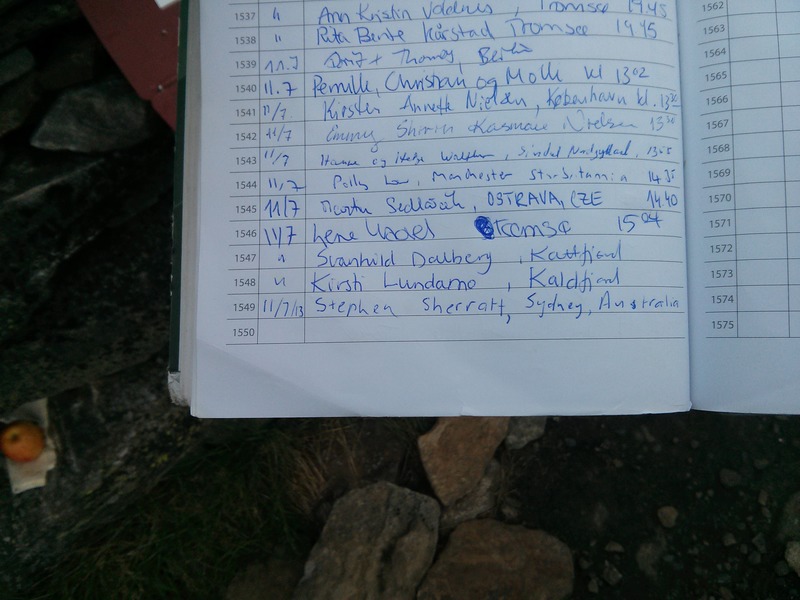 1537 " Ann Kristin Tromsø 1945
1562
1538 " Rita Bente Kårstad Tromsø 1945
1563
1539 11.7 + Thomas, Berlin
1564
1540 11.7 Pernille, Christian og Molle kl 1302
1565
1541 11/7 Kirsten Annette Nielsen, København kl. 1330
1566
1542 11/7 Nielsen 1330
1567
1543 11/7 og
1568
1544 11,7 Polly Manchester 14.35
1569
1545 11/7 Sedláček, OSTRAVA, CZE 1440
1570
1546 11/7 Lene Tromsø 1504
1571
1547 " Svanhild Dalberg, Kattfjord
1572
1548 " Kirsti Lundamo, Kaldfjord
1573
1549 11/7/13 Stephen Sherratt, Sydney, Australia
1574
1550
1575